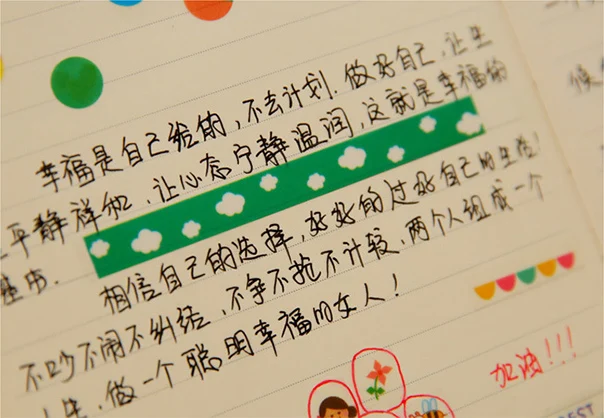 幸福是自己给的,不去计划.做好自己,让生
平静祥和.让心态宁静温润,这就是幸福的
相信自己的选择,好好的过好自己的生活!
不吵不闹不纠结,不争不抢不计较.两个人组成一个
生,做一个聪明幸福的女人!
加油!!!
EST